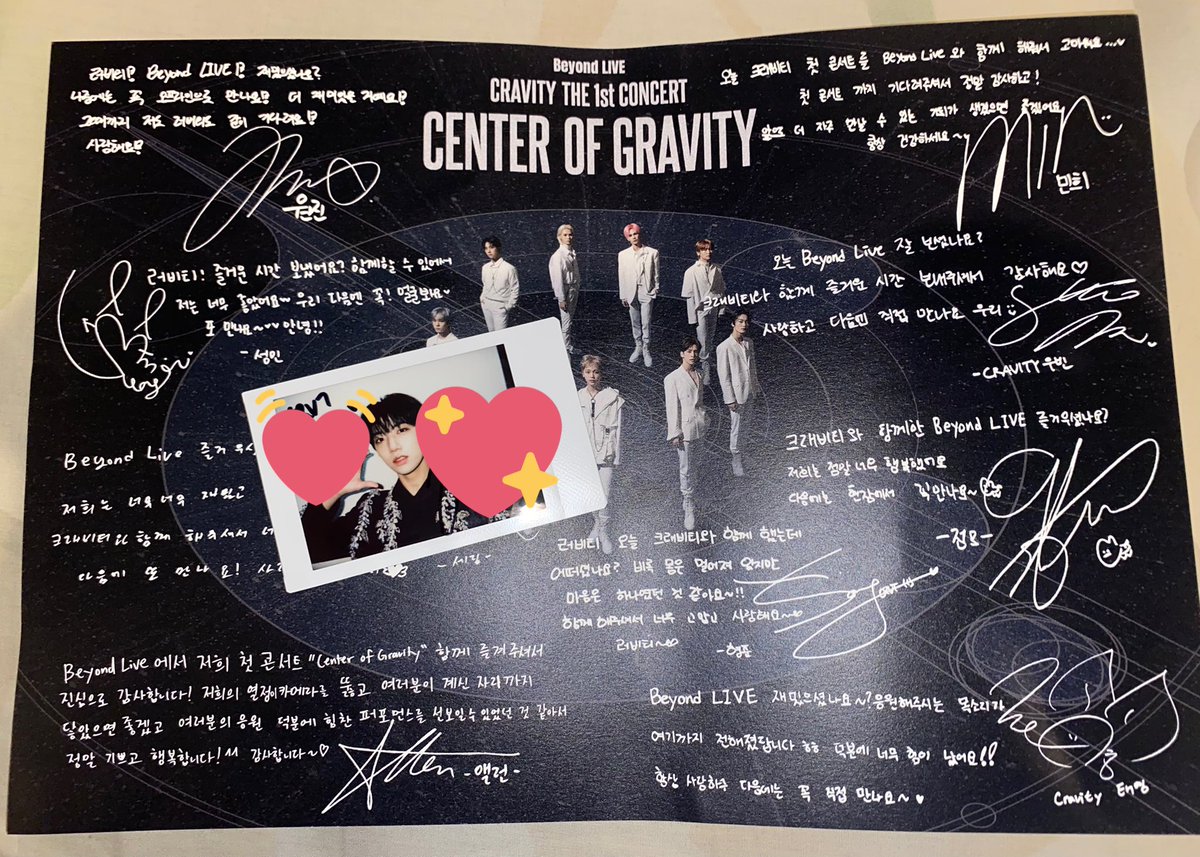 Beyond LIVE
CRAVITY THE 1st CONCERT
CENTER OF GRAVITY
러비티! Beyond LIVE! 재밌었나요?
다음에는 꼭 오프라인으로 만나요! 더 재미있을 거예요!
그때까지 저도 러비티도 기다려요!
사랑해요!
원진
오늘 크래비티 첫 콘서트를 Beyond Live와 함께 해줘서 고마워요...~
첫 콘서트 까지 기다려주셔서 정말 감사하고!
앞으로 더 자주 만날 수 있는 기회가 생겼으면 좋겠어요
항상 건강하세요~
민희
러비티! 즐거운 시간 보냈어요? 함께할 수 있어서
저는 너무 좋았어요~ 우리 다음엔 꼭! 얼굴봐요
또 만나요~ 안녕!!
- 성민
오늘 Beyond Live 잘 보셨나요?
크래비티와 함께 즐거운 시간 보내주셔서 감사해요♡
사랑하고 다음엔 직접 만나요 우리
-CRAVITY 우빈
Beyond Live 즐거우셨
저희는 너무너무 재밌고
크래비티와 함께 해주셔서 너
다음에 또 만나요! 사
- 세림 -
크래비티와 함께한 Beyond LIVE 즐거우셨나요?
저희는 정말 너무 행복했어요
다음에는 현장에서 꼭 만나요~
-정모-
러비티 오늘 크래비티와 함께 했는데
어떠셨나요? 비록 몸은 멀어져 있지만
마음은 하나였던 것 같아요~!!
함께 해주셔서 너무 고맙고 사랑해요~
러비티~♡
-형준
Beyond Live 에서 저희 첫 콘서트 "Center of Gravity" 함께 즐겨주셔서
진심으로 감사합니다! 저희의 열정이 카메라를 뚫고 여러분이 계신 자리까지
닿았으면 좋겠고 여러분의 응원 덕분에 힘찬 퍼포먼스를 선보일 수 있었던 것 같아서
정말 기쁘고 행복합니다! 감사합니다~♡
Allen -앨런-
Beyond LIVE 재밌으셨나요~? 응원해주시는 목소리가
여기까지 전해졌답니다 ㅎㅎ 덕분에 너무 힘이 났어요!!
항상 사랑하구 다음에는 꼭 직접 만나요~♥
Cravity 태영